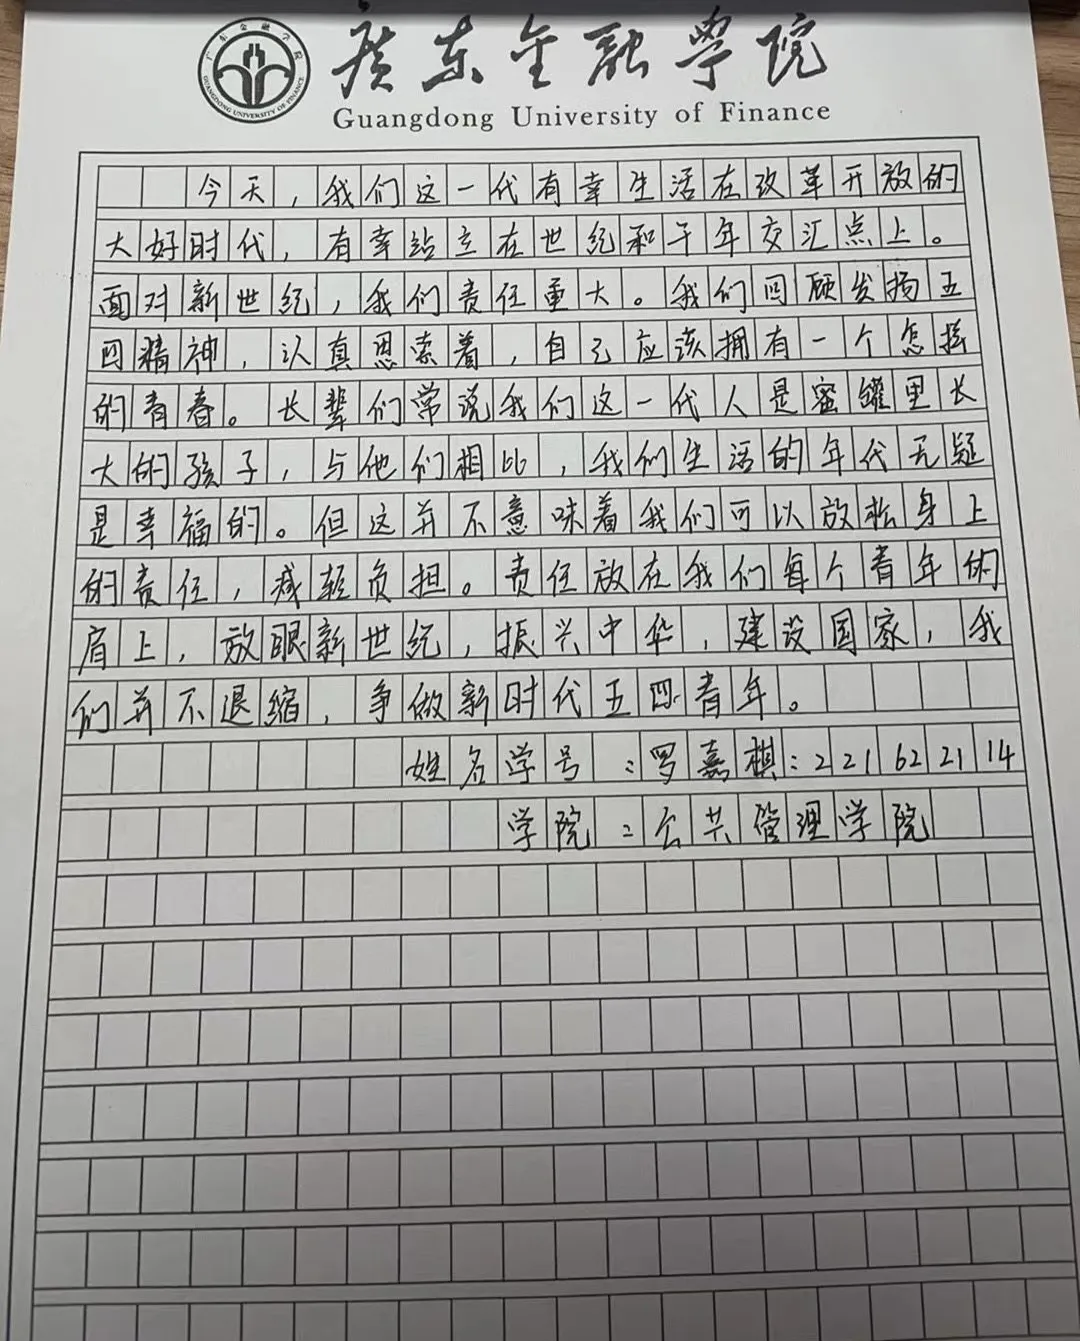 广东金融学院
GUANGDONG UNIVERSITY OF FINANCE
广东金融學院
Guangdong University of Finance
今天，我们这一代有幸生活在改革开放的
大好时代，有幸站立在世纪和千年交汇点上。
面对新世纪，我们责任重大。我们回顾发扬五
四精神，认真思索着，自己应该拥有一个怎样
的青春。长辈们常说我们这一代人是蜜罐里长
大的孩子，与他们相比，我们生活的年代无疑
是幸福的。但这并不意味着我们可以放松身上
的责任，减轻负担。责任放在我们每个青年的
肩上，放眼新世纪，振兴中华，建设国家，我
们并不退缩，争做新时代五四青年。
姓名学号：罗嘉棋：221622114
学院：公共管理学院